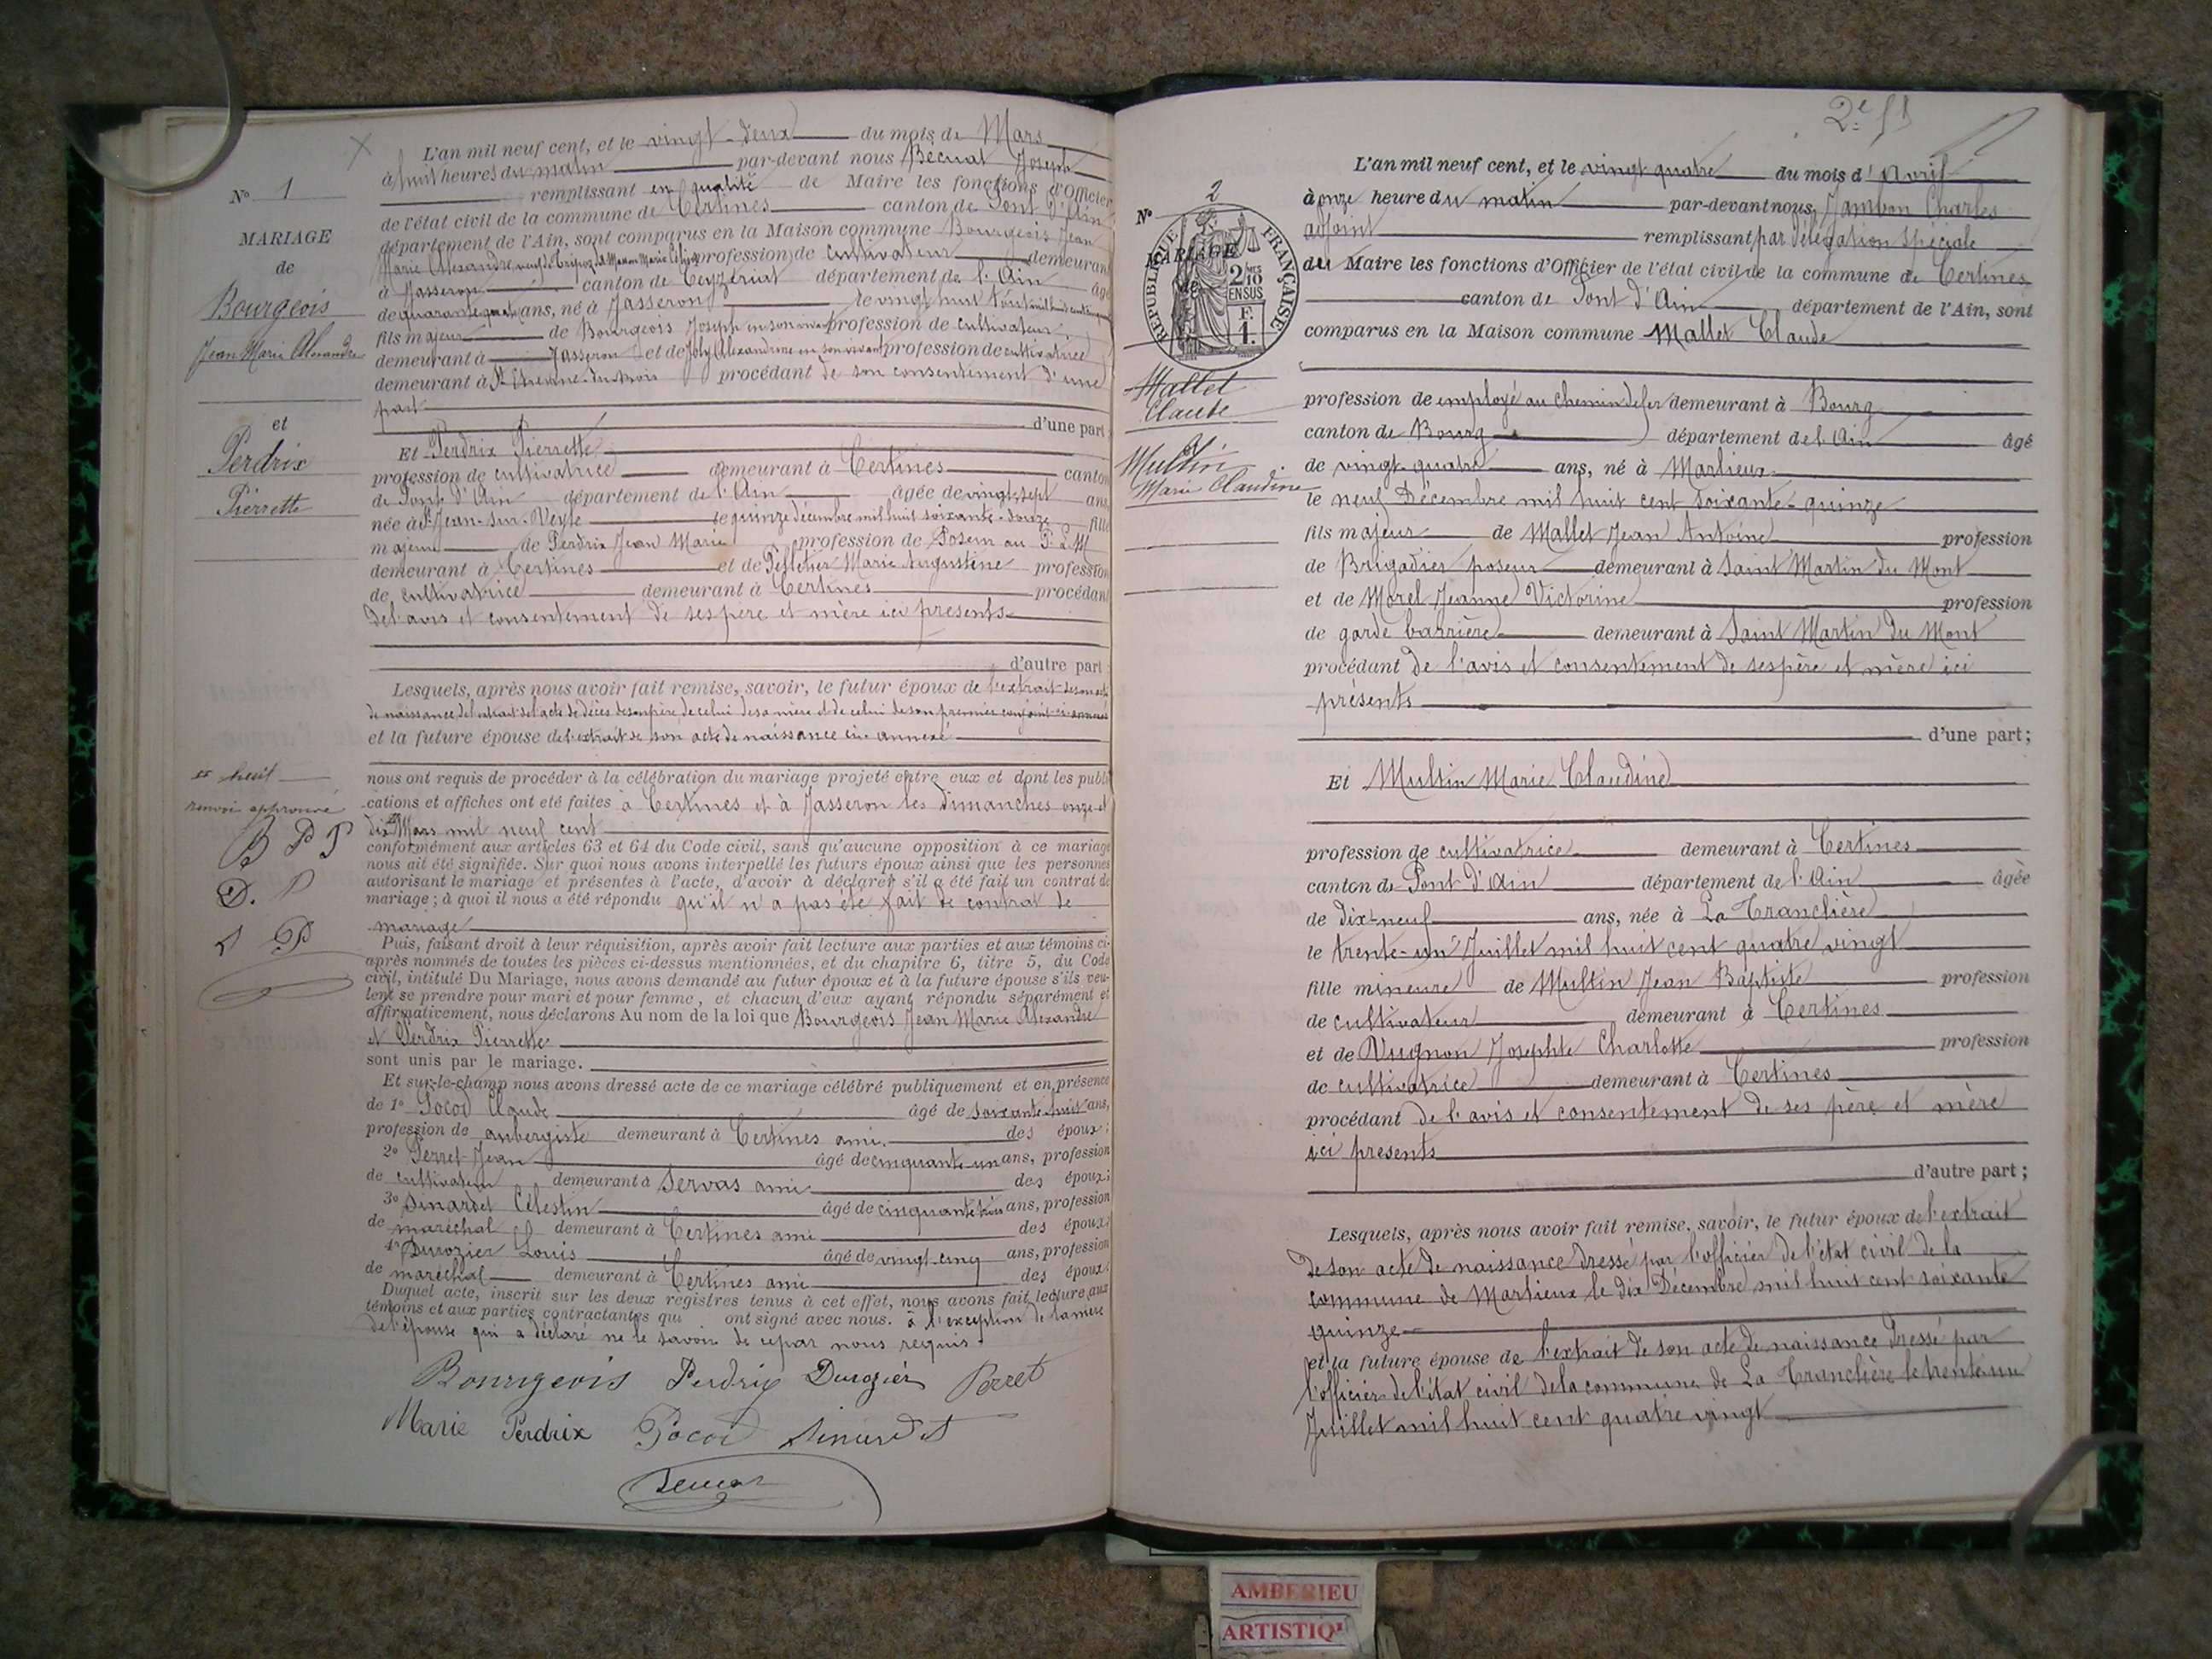 L'an mil neuf cent, et le vingt-deux du mois de Mars
à huit heures du matin par-devant nous Bécuat Joseph
remplissant en qualité de Maire les fonctions d'Officier
de l'état civil de la commune de Certines canton de Pont d'Ain
département de l'Ain, sont comparus en la Maison commune Bourgeois Jean
Marie Alexandre profession de cultivateur demeurant
à Jasseron canton de Ceyzériat département de l'Ain âgé
de quarante quatre ans, né à Jasseron le vingt huit
fils majeur de Bourgeois Joseph en son vivant profession de cultivateur
demeurant à Jasseron et de Joly Alexandrine en son vivant profession de cultivatrice
demeurant à St Etienne-du-Bois procédant de son consentement d'une
part
d'une part
N° 1
MARIAGE
de
Bourgeois
Jean Marie Alexandre
et
Perdrix
Pierrette
Et Perdrix Pierrette
profession de cultivatrice demeurant à Certines canton
de Pont d'Ain département de l'Ain âgée de vingt-sept ans,
née à St Jean-sur-Veyle le quinze décembre mil huit soixante-douze fille
majeure de Perdrix Jean Marie profession de Poseur au P.L.M
demeurant à Certines et de Pelletier Marie Augustine profession
de cultivatrice demeurant à Certines procédant
de l'avis et consentement de ses père et mère ici présents
d'autre part
Lesquels, après nous avoir fait remise, savoir, le futur époux de l'extrait de son acte
de naissance, de l'extrait de l'acte de décès de son père de celui de sa mère et de celui de son premier conjoint ci-annexés
et la future épouse de l'extrait de son acte de naissance ci-annexé
nous ont requis de procéder à la célébration du mariage projeté entre eux et dont les publi-
cations et affiches ont été faites à Certines et à Jasseron les Dimanches onze et
dix Mars mil neuf cent
huit
renvoi approuvé
B P P
D. P
conformément aux articles 63 et 64 du Code civil, sans qu'aucune opposition à ce mariage
nous ait été signifiée. Sur quoi nous avons interpellé les futurs époux ainsi que les personnes
autorisant le mariage et présentes à l'acte, d'avoir à déclarer s'il a été fait un contrat de
mariage; à quoi il nous a été répondu qu'il n'a pas été fait de contrat de
mariage
Puis, faisant droit à leur réquisition, après avoir fait lecture aux parties et aux témoins ci-
après nommés de toutes les pièces ci-dessus mentionnées, et du chapitre 6, titre 5, du Code
civil, intitulé Du Mariage, nous avons demandé au futur époux et à la future épouse s'ils veu-
lent se prendre pour mari et pour femme, et chacun d'eux ayant répondu séparément et
affirmativement, nous déclarons Au nom de la loi que Bourgeois Jean Marie Alexandre
et Perdrix Pierrette
sont unis par le mariage.
Et sur-le-champ nous avons dressé acte de ce mariage célébré publiquement et en présence
de 1° Pocod Claude âgé de soixante huit ans,
profession de aubergiste demeurant à Certines ami des époux;
2° Perret Jean âgé de cinquante-un ans, profession
de cultivateur demeurant à Servas ami des époux;
3° Sinardet Célestin âgé de cinquante trois ans, profession
de maréchal demeurant à Certines ami des époux;
4° Durozier Louis âgé de vingt-cinq ans, profession
de maréchal demeurant à Certines ami des époux.
Duquel acte, inscrit sur les deux registres tenus à cet effet, nous avons fait lecture aux
témoins et aux parties contractantes qui ont signé avec nous. à l'exception de la mère
de l'épouse qui a déclaré ne le savoir de ce par nous requis.
Bourgeois Perdrix Durozier Perret
Marie Perdrix Pocod Sinardet
2e
L'an mil neuf cent, et le vingt-quatre du mois d'Avril
à onze heure du matin par-devant nous, Jambon Charles
adjoint remplissant par délégation spéciale
du Maire les fonctions d'Officier de l'état civil de la commune de Certines
canton de Pont d'Ain département de l'Ain, sont
comparus en la Maison commune Mallet Claude
N° 2
MARIAGE
de
RÉPUBLIQUE FRANÇAISE
2/10 EN SUS
F. 1.
Mallet
Claude
et
Multin
Marie Claudine
profession de employé au chemin de fer demeurant à Bourg
canton de Bourg département de l'Ain âgé
de vingt-quatre ans, né à Marlieux
le neuf Décembre mil huit cent soixante-quinze
fils majeur de Mallet Jean Antoine profession
de Brigadier poseur demeurant à Saint Martin du Mont
et de Morel Jeanne Victorine profession
de garde barrière demeurant à Saint Martin du Mont
procédant de l'avis et consentement de ses père et mère ici
présents
d'une part;
Et Multin Marie Claudine
profession de cultivatrice demeurant à Certines
canton de Pont d'Ain département de l'Ain âgée
de dix-neuf ans, née à La Tranclière
le trente-un Juillet mil huit cent quatre vingt
fille mineure de Multin Jean Baptiste profession
de cultivateur demeurant à Certines
et de Vugnon Josephte Charlotte profession
de cultivatrice demeurant à Certines
procédant de l'avis et consentement de ses père et mère
ici présents
d'autre part;
Lesquels, après nous avoir fait remise, savoir, le futur époux de l'extrait
de son acte de naissance dressé par l'officier de l'état civil de la
commune de Marlieux le dix Décembre mil huit cent soixante
quinze
et la future épouse de l'extrait de son acte de naissance dressé par
l'officier de l'état civil de la commune de La Tranclière le trente-un
Juillet mil huit cent quatre vingt
AMBERIEU
ARTISTIQ